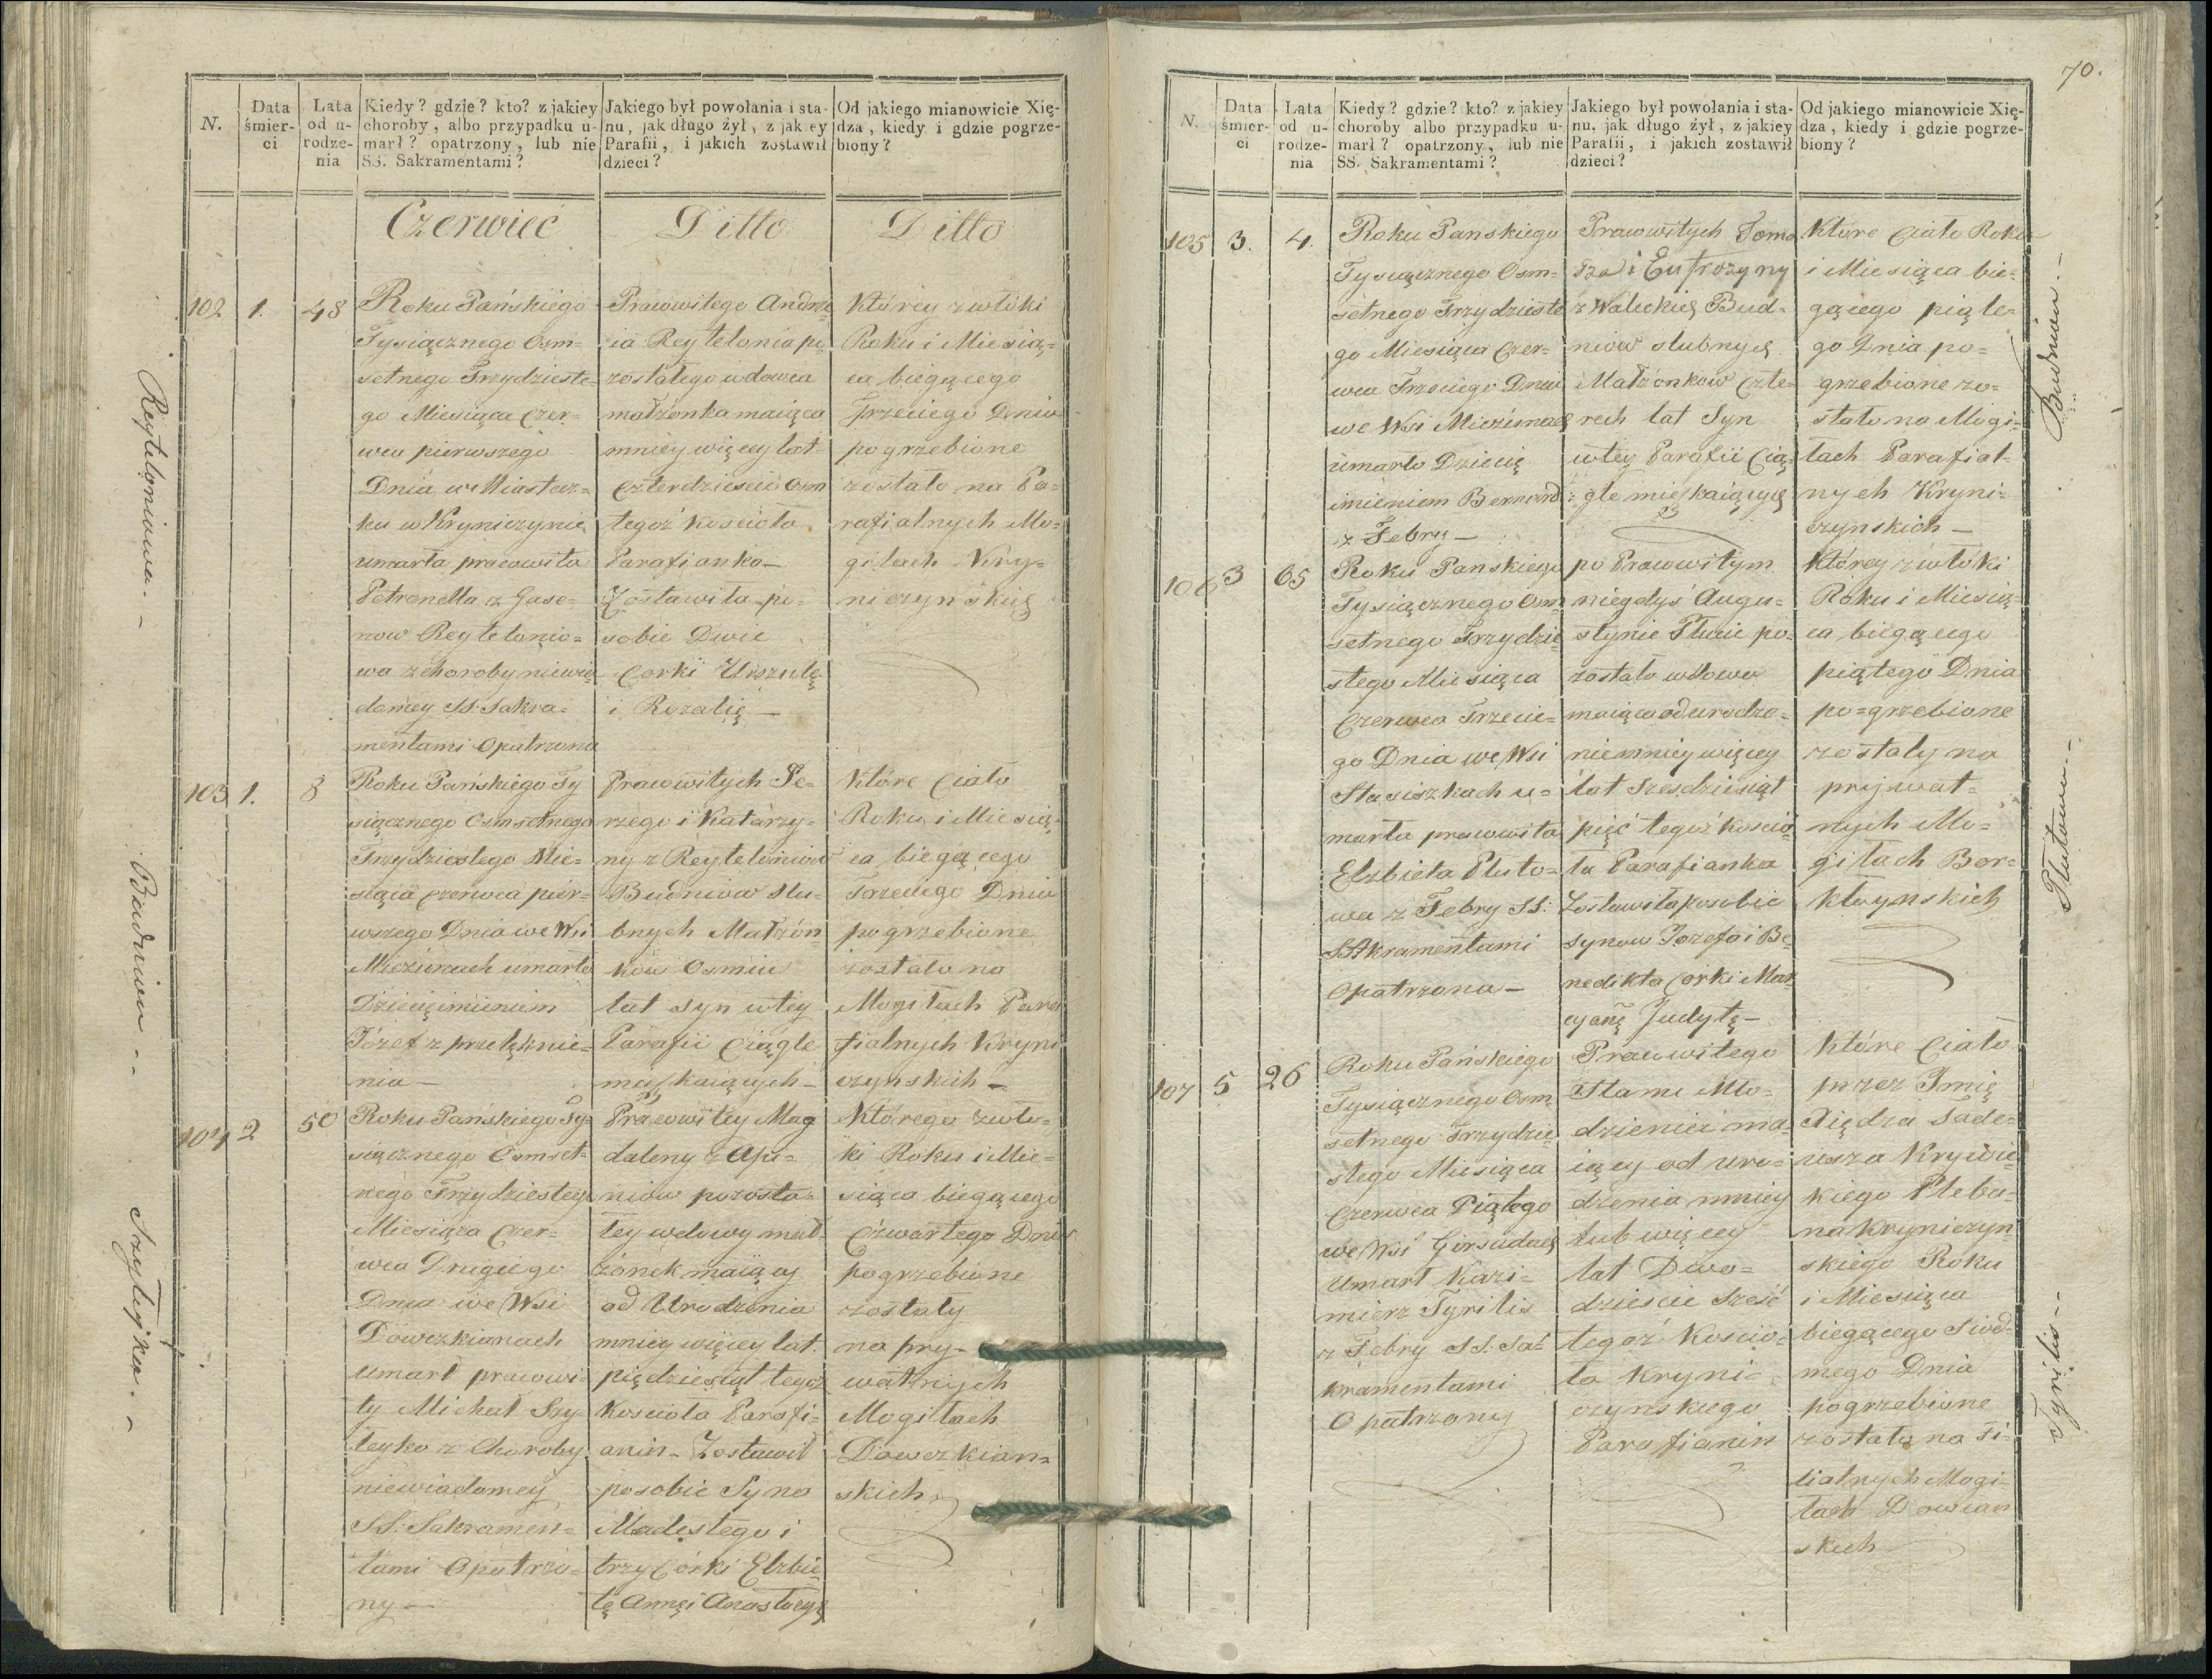 N.
Data śmier-
ci
Lata
od u-
rodze-
nia
Kiedy? gdzie? kto? z jakiey
choroby, albo przypadku u-
marł? opatrzony, lub nie
SS. Sakramentami?
Jakiego był powołania i sta-
nu, jak długo żył, z jakiey
Parafii, i jakich zostawił
dzieci?
Od jakiego mianowicie Xię-
dza, kiedy i gdzie pogrze-
biony?
Czerwiec
Ditto
Ditto
Reyteloniowa. -
102
1.
48
Roku Pańskiego
Tysiącznego Osm=
setnego Trzydzieste=
go Miesiąca Czer=
wca pierwszego
Dnia w Miastecz=
ku w Kryniczynie
umarła pracowita
Petronella z Gase=
now Reytelonio=
wa z choroby niewia
domey SS: Sakra=
mentami Opatrzona
Pracowitego Andrze
ia Reytelonia po
zostałego wdowca
małżonka maiąca
mniey więcey lat
Czterdzieści Osm
tegoż kościoła
Parafianka —
Zostawiła po=
sobie Dwie
Corki Urszulę
i Rozalię —
Którey zwłoki
Roku i Miesią=
ca biegącego
Trzeciego Dnia
pogrzebione
zostało na Pa=
rafialnych Mo=
giłach Kry=
niczyńskich
Budniow - -
103
1.
8
Roku Pańskiego Ty
siącznego Osmsetnego
Trzydziestego Mie=
siąca Czerwca pier=
wszego Dnia we Wsi
Mieziuncach umarło
Dziecię imieniem
Józef z przelęknie=
nia —
Pracowitych Je=
rzego i Katarzy=
ny z Reyteloniow
Budniow Slu=
bnych Małżon
kow Osmiu
lat Syn w tey
Parafii Ciągle
mieszkaiących —
Które Ciało
Roku i Miesią=
ca biegącego
Trzeciego Dnia
pogrzebione
zostało na
Mogiłach Para
fialnych Kryni
czynskich —
Szyleyko. -
104
2
50
Roku Pańskiego Ty=
siącznego Osmset=
nego Trzydziestego
Miesiąca Czer=
wca Drugiego
Dnia we Wsi
Dowczkianach
Umarł pracowi=
ty Michał Szy=
leyko z Choroby
niewiadomey
SS: Sakramen=
tami Opatrzo=
ny —
Pracowitey Mag
daleny z
niow pozosta=
łey wdowy mał
żonek maiący
od Urodzenia
mniey więcey lat
piędziesiąt tegoż
Kościoła Parafi=
anin - Zostawił
posobie Syna
Madestego i
trzy Córki Elzbie
tę Annę i Anastazyę
Którego zwło=
ki Roku i Mie=
siąca biegącego
Czwartego Dnia
pogrzebione
zostały
na pry-
watnych
Mogiłach
Dowczkian=
skich
70.
N.
Data
śmier-
ci
Lata
od u-
rodze-
nia
Kiedy? gdzie? kto? z jakiey
choroby albo przypadku u-
marł? opatrzony, lub nie
SS. Sakramentami?
Jakiego był powołania i sta-
nu, jak długo żył, z jakiey
Parafii, i jakich zostawił
dzieci?
Od jakiego mianowicie Xię-
dza, kiedy i gdzie pogrze-
biony?
105
3.
4.
Roku Panskiego
Tysiącznego Osm=
setnego Trzydzieste
go Miesiąca Czer=
wca Trzeciego Dnia
we Wsi Mieziuncach
umarło Dziecię
imieniem Bernard
z Febry —
Pracowitych Toma
sza i Eufrozyny
z Waluckich Bud=
niow slubnych
Małżonkow Czte=
rech lat Syn
w tey Parafii Cią=
gle mieszkaiących
Które Ciało Roku
i Miesiąca bie=
gącego piąte=
go Dnia po=
grzebione zo=
stało na Mogi=
łach Parafial=
nych Kryni=
czynskich —
Budniow. -
106
3
65
Roku Panskiego
Tysiącznego Osm
setnego Trzydzie
stego Miesiąca
Czerwca Trzecie=
go Dnia we Wsi
Stasiszkach u=
marła pracowita
Elzbieta Pluto=
wa z Febry SS:
SAkramentami
Opatrzona —
po Pracowitym
niegdyś Augu=
stynie Plucie po=
zostało wdowa
maiąca od urodze=
nia mniey więcey
lat Szesdziesiąt
pięć tegoż koscio
ła Parafianka
Zostawiła posobie
Synow Jozefa i Be
nedikta Corki Mar
cyanę Judytę —
Którey zwłoki
Roku i Miesią=
ca biegącego
piątego Dnia
po=grzebione
zostały na
prywat=
nych Mo=
giłach Bor=
kłoynskich
Plutowa. -
107
5
26
Roku Pańskiego
Tysiącznego Osm
setnego Trzydzie
stego Miesiąca
Czerwca Piątego
we Wsi Girsudach
Umarł Kazi=
mierz Tyrilis
z Febry SS: Sa=
kramentami
Opatrzony
Pracowitego
Stanu Mło=
dzieniec ma=
iący od uro=
dzenia mniey
lub więcey
lat Dwa=
dzieście Sześć
tegoż Koscio=
ła Kryni=
czynskiego
Parafianin
Które Ciało
przez Imię
Xiędza Tade=
usza Krywie
kiego Pleba=
na Kryniczyn
skiego Roku
i Miesiąca
biegącego Siod=
mego Dnia
pogrzebione
zostało na Fi=
lialnych Mogi=
łach Dowcian
skich
Tyrilis - -